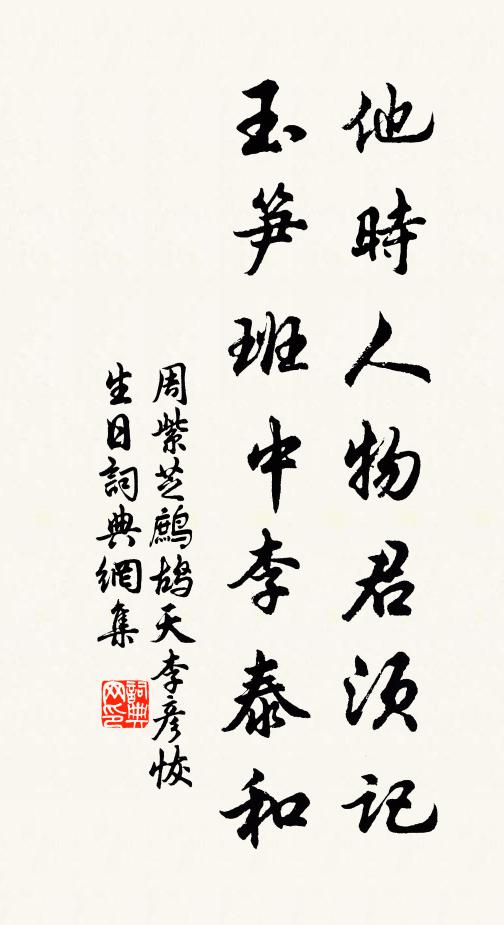 他時人物君須記
玉笋班中李泰和
周紫芝鷓鴣天李彥恢
生日詞典網集
詞典
网印